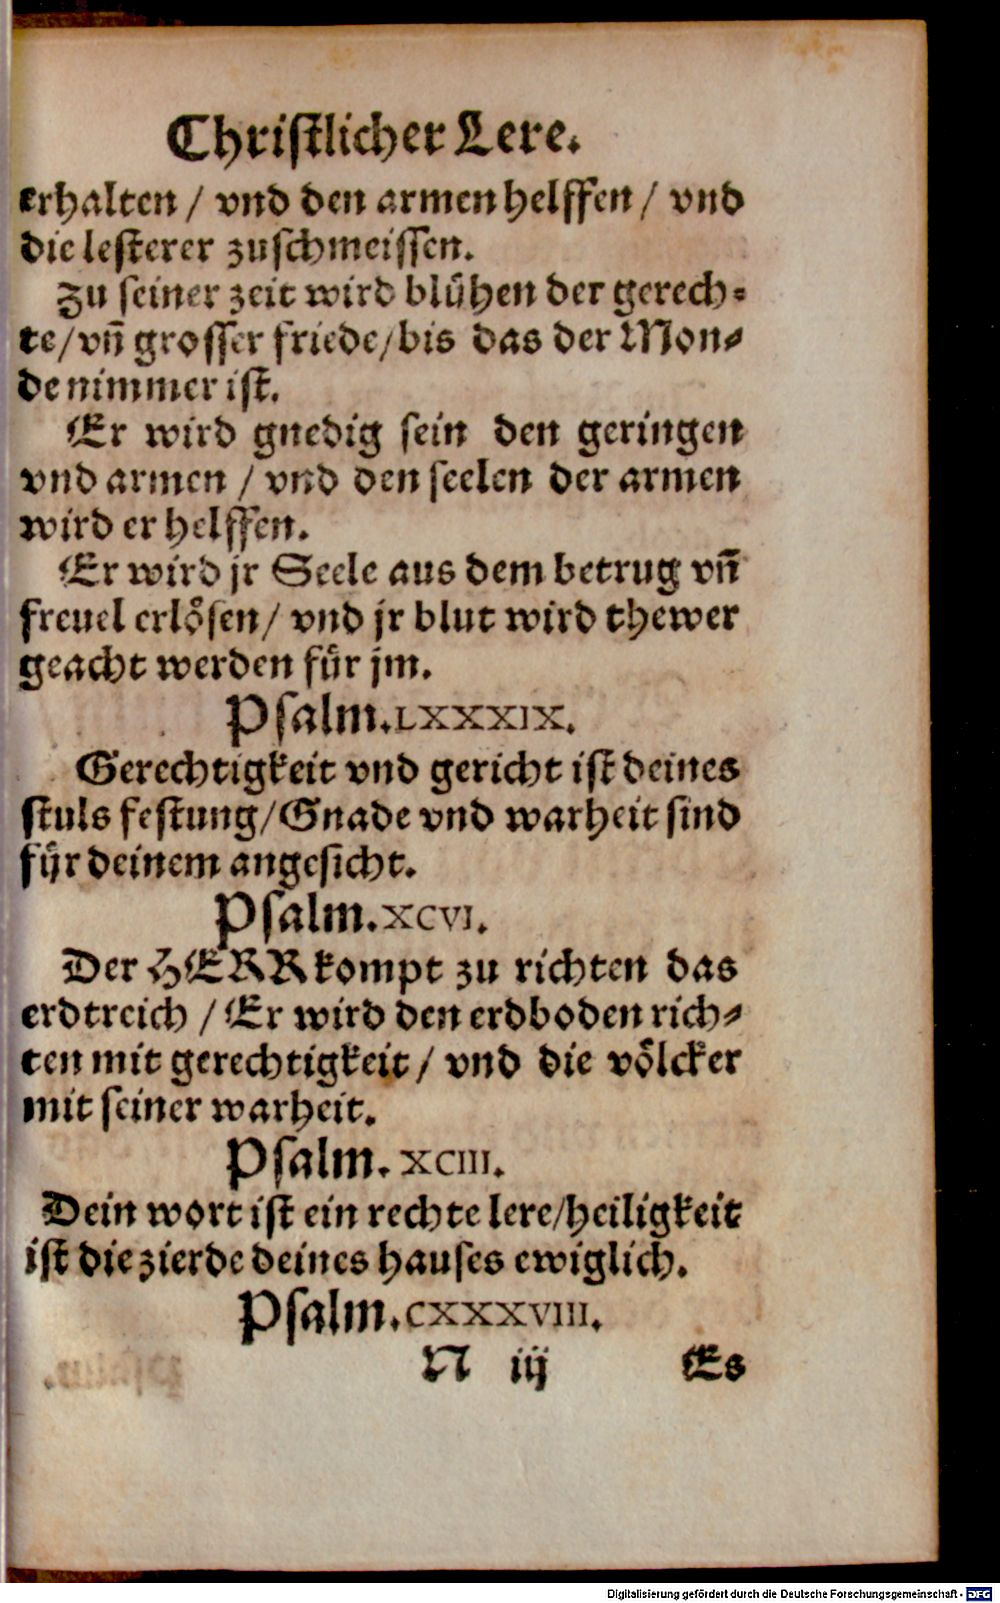 Christlicher Lere.
erhalten / vnd den armen helffen / vnd
die lesterer zuschmeissen.
Zu seiner zeit wird blühen der gerech⸗
te/vn̄ grosser friede/bis das der Mon⸗
de nimmer ist.
Er wird gnedig sein den geringen
vnd armen / vnd den seelen der armen
wird er helffen.
Er wird jr Seele aus dem betrug vn̄
freuel erlösen/ vnd jr blut wird thewer
geacht werden für jm.
Psalm.LXXXIX.
Gerechtigkeit vnd gericht ist deines
stuls festung/Gnade vnd warheit sind
für deinem angesicht.
Psalm.XCVI.
Der HERR kompt zu richten das
erdtreich / Er wird den erdboden rich⸗
ten mit gerechtigkeit / vnd die völcker
mit seiner warheit.
Psalm. XCIII.
Dein wort ist ein rechte lere/heiligkeit
ist die zierde deines hauses ewiglich.
Psalm.CXXXVIII.
N iij Es
Digitalisierung gefördert durch die Deutsche Forschungsgemeinschaft - DFG